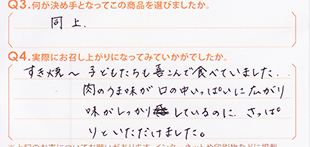 Q3.何が決め手となってこの商品を選びましたか。
同上.
Q4.実際にお召し上がりになってみていかがでしたか。
すき焼〜 子どもたちも喜こんで食べていました.
肉のうま味が口の中いっぱいに広がり
味がしっかりしているのに、さっぱ
りといただけました。